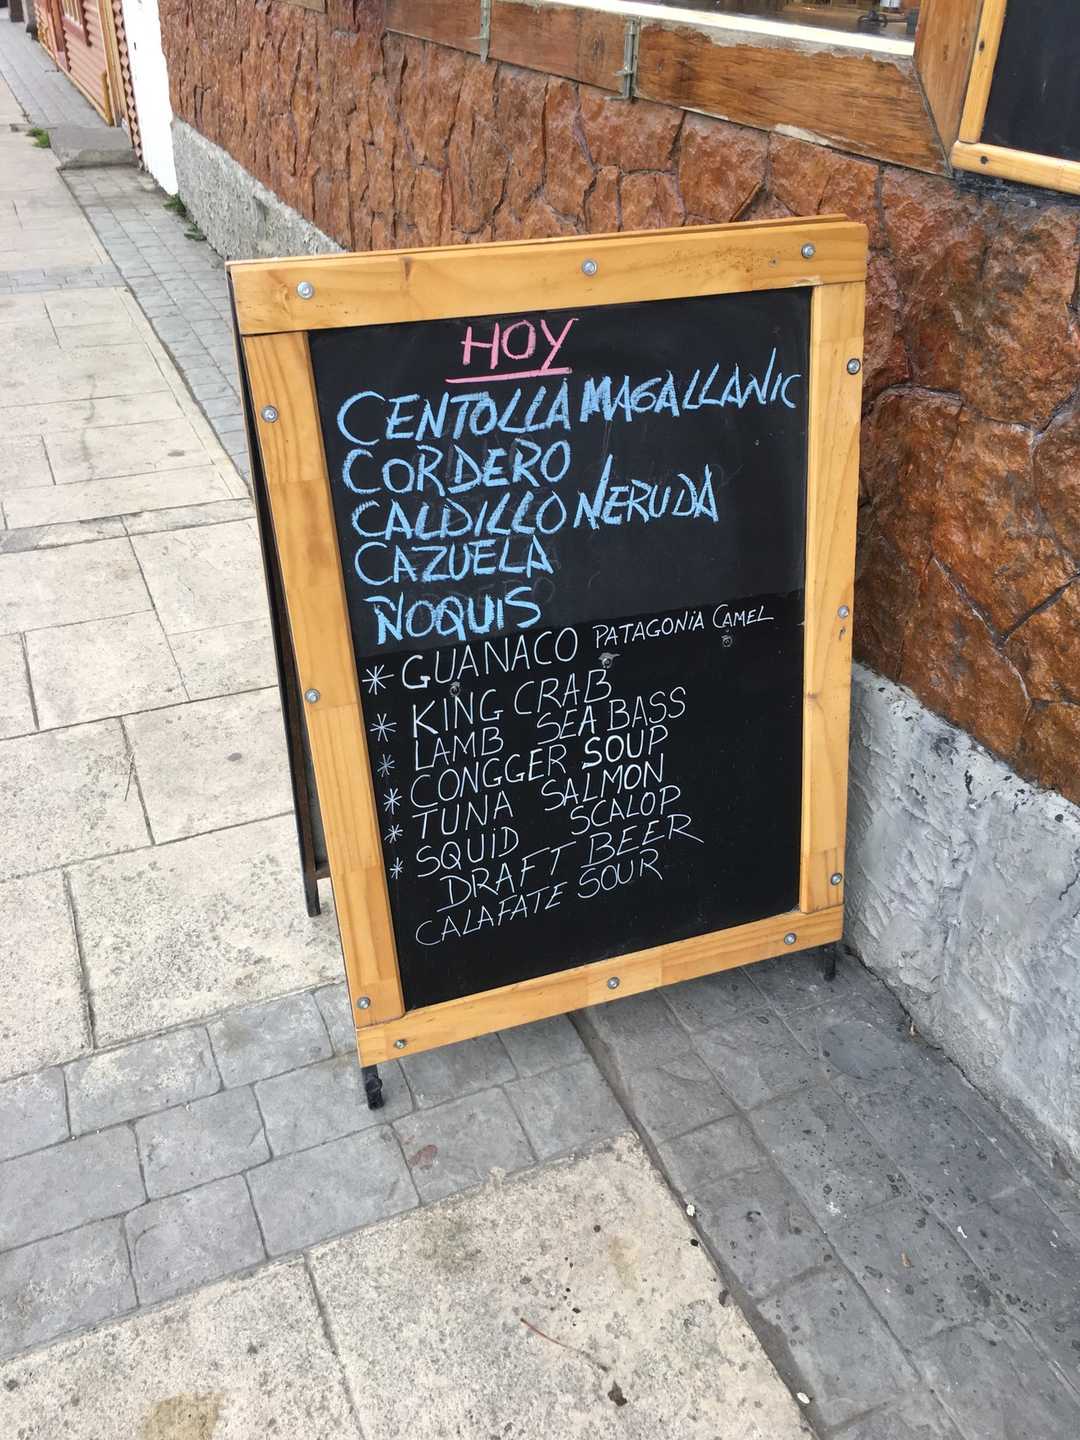 HOY
CENTOLLA MAGALLANIC
CORDERO
CALDILLO NERUDA
CAZUELA
ÑOQUIS
* GUANACO PATAGONIA CAMEL
* KING CRAB
* LAMB SEA BASS
* CONGGER SOUP
* TUNA SALMON
* SQUID SCALOP
DRAFT BEER
CALAFATE SOUR